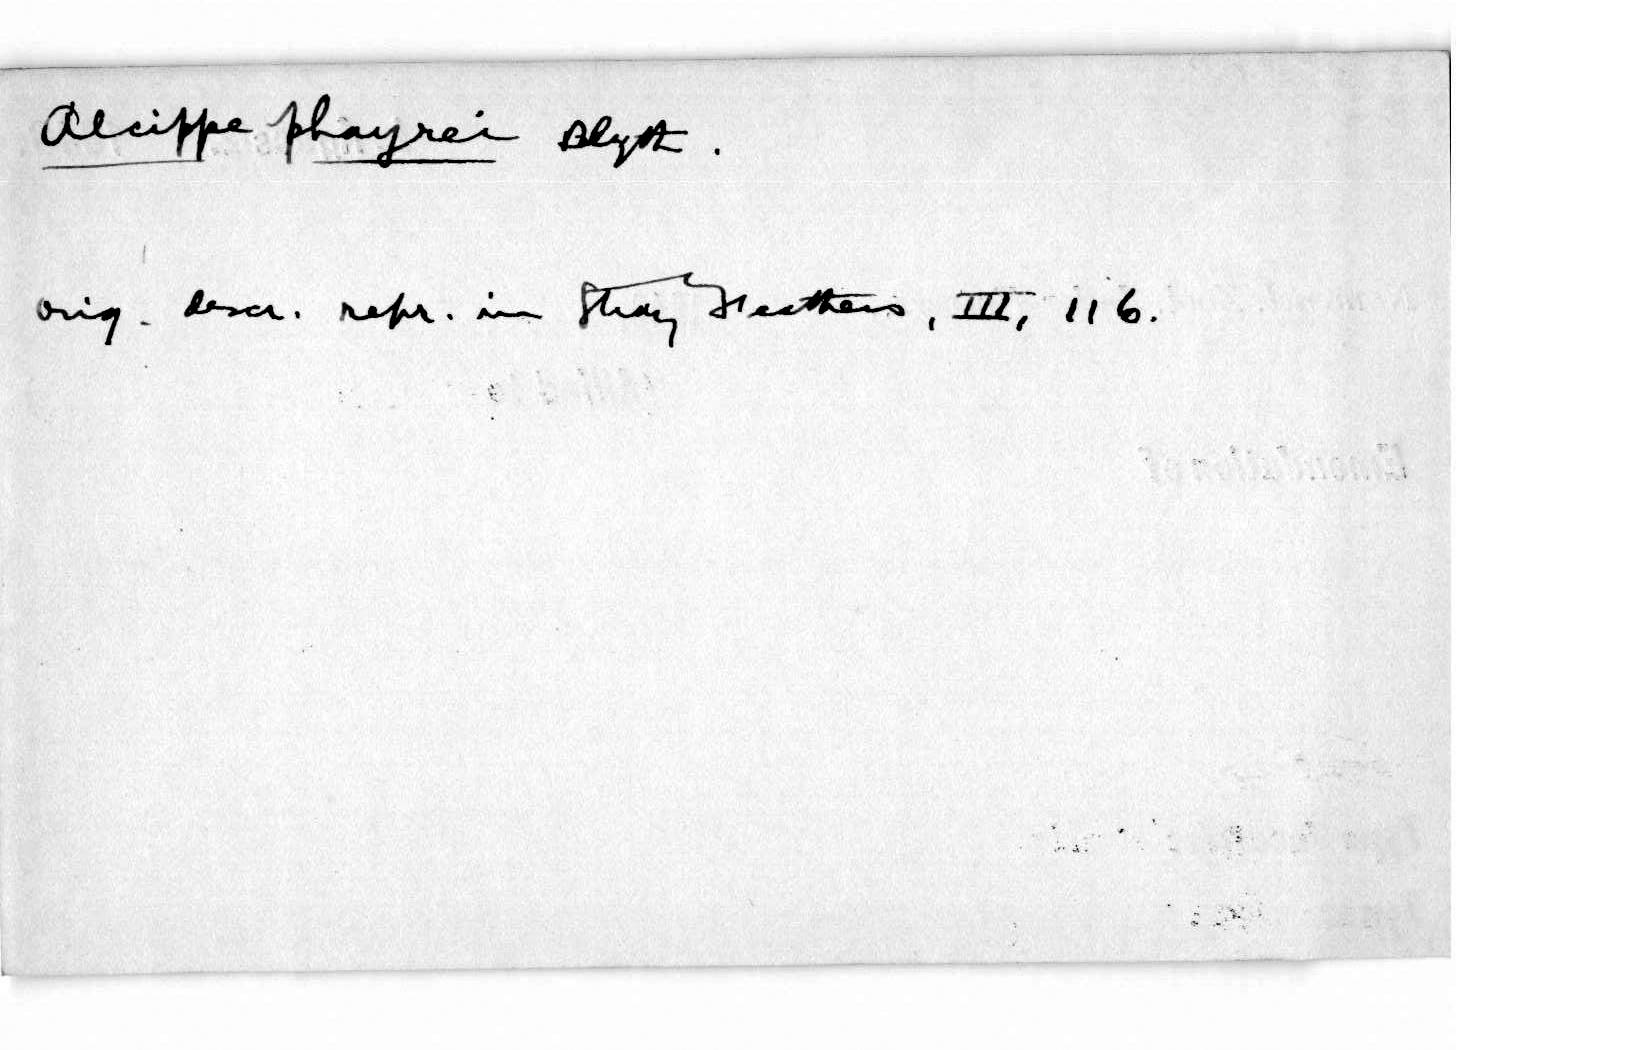 Alcippe phayrei Blyth.
orig. descr. repr. in Stray Feathers, III, 116.